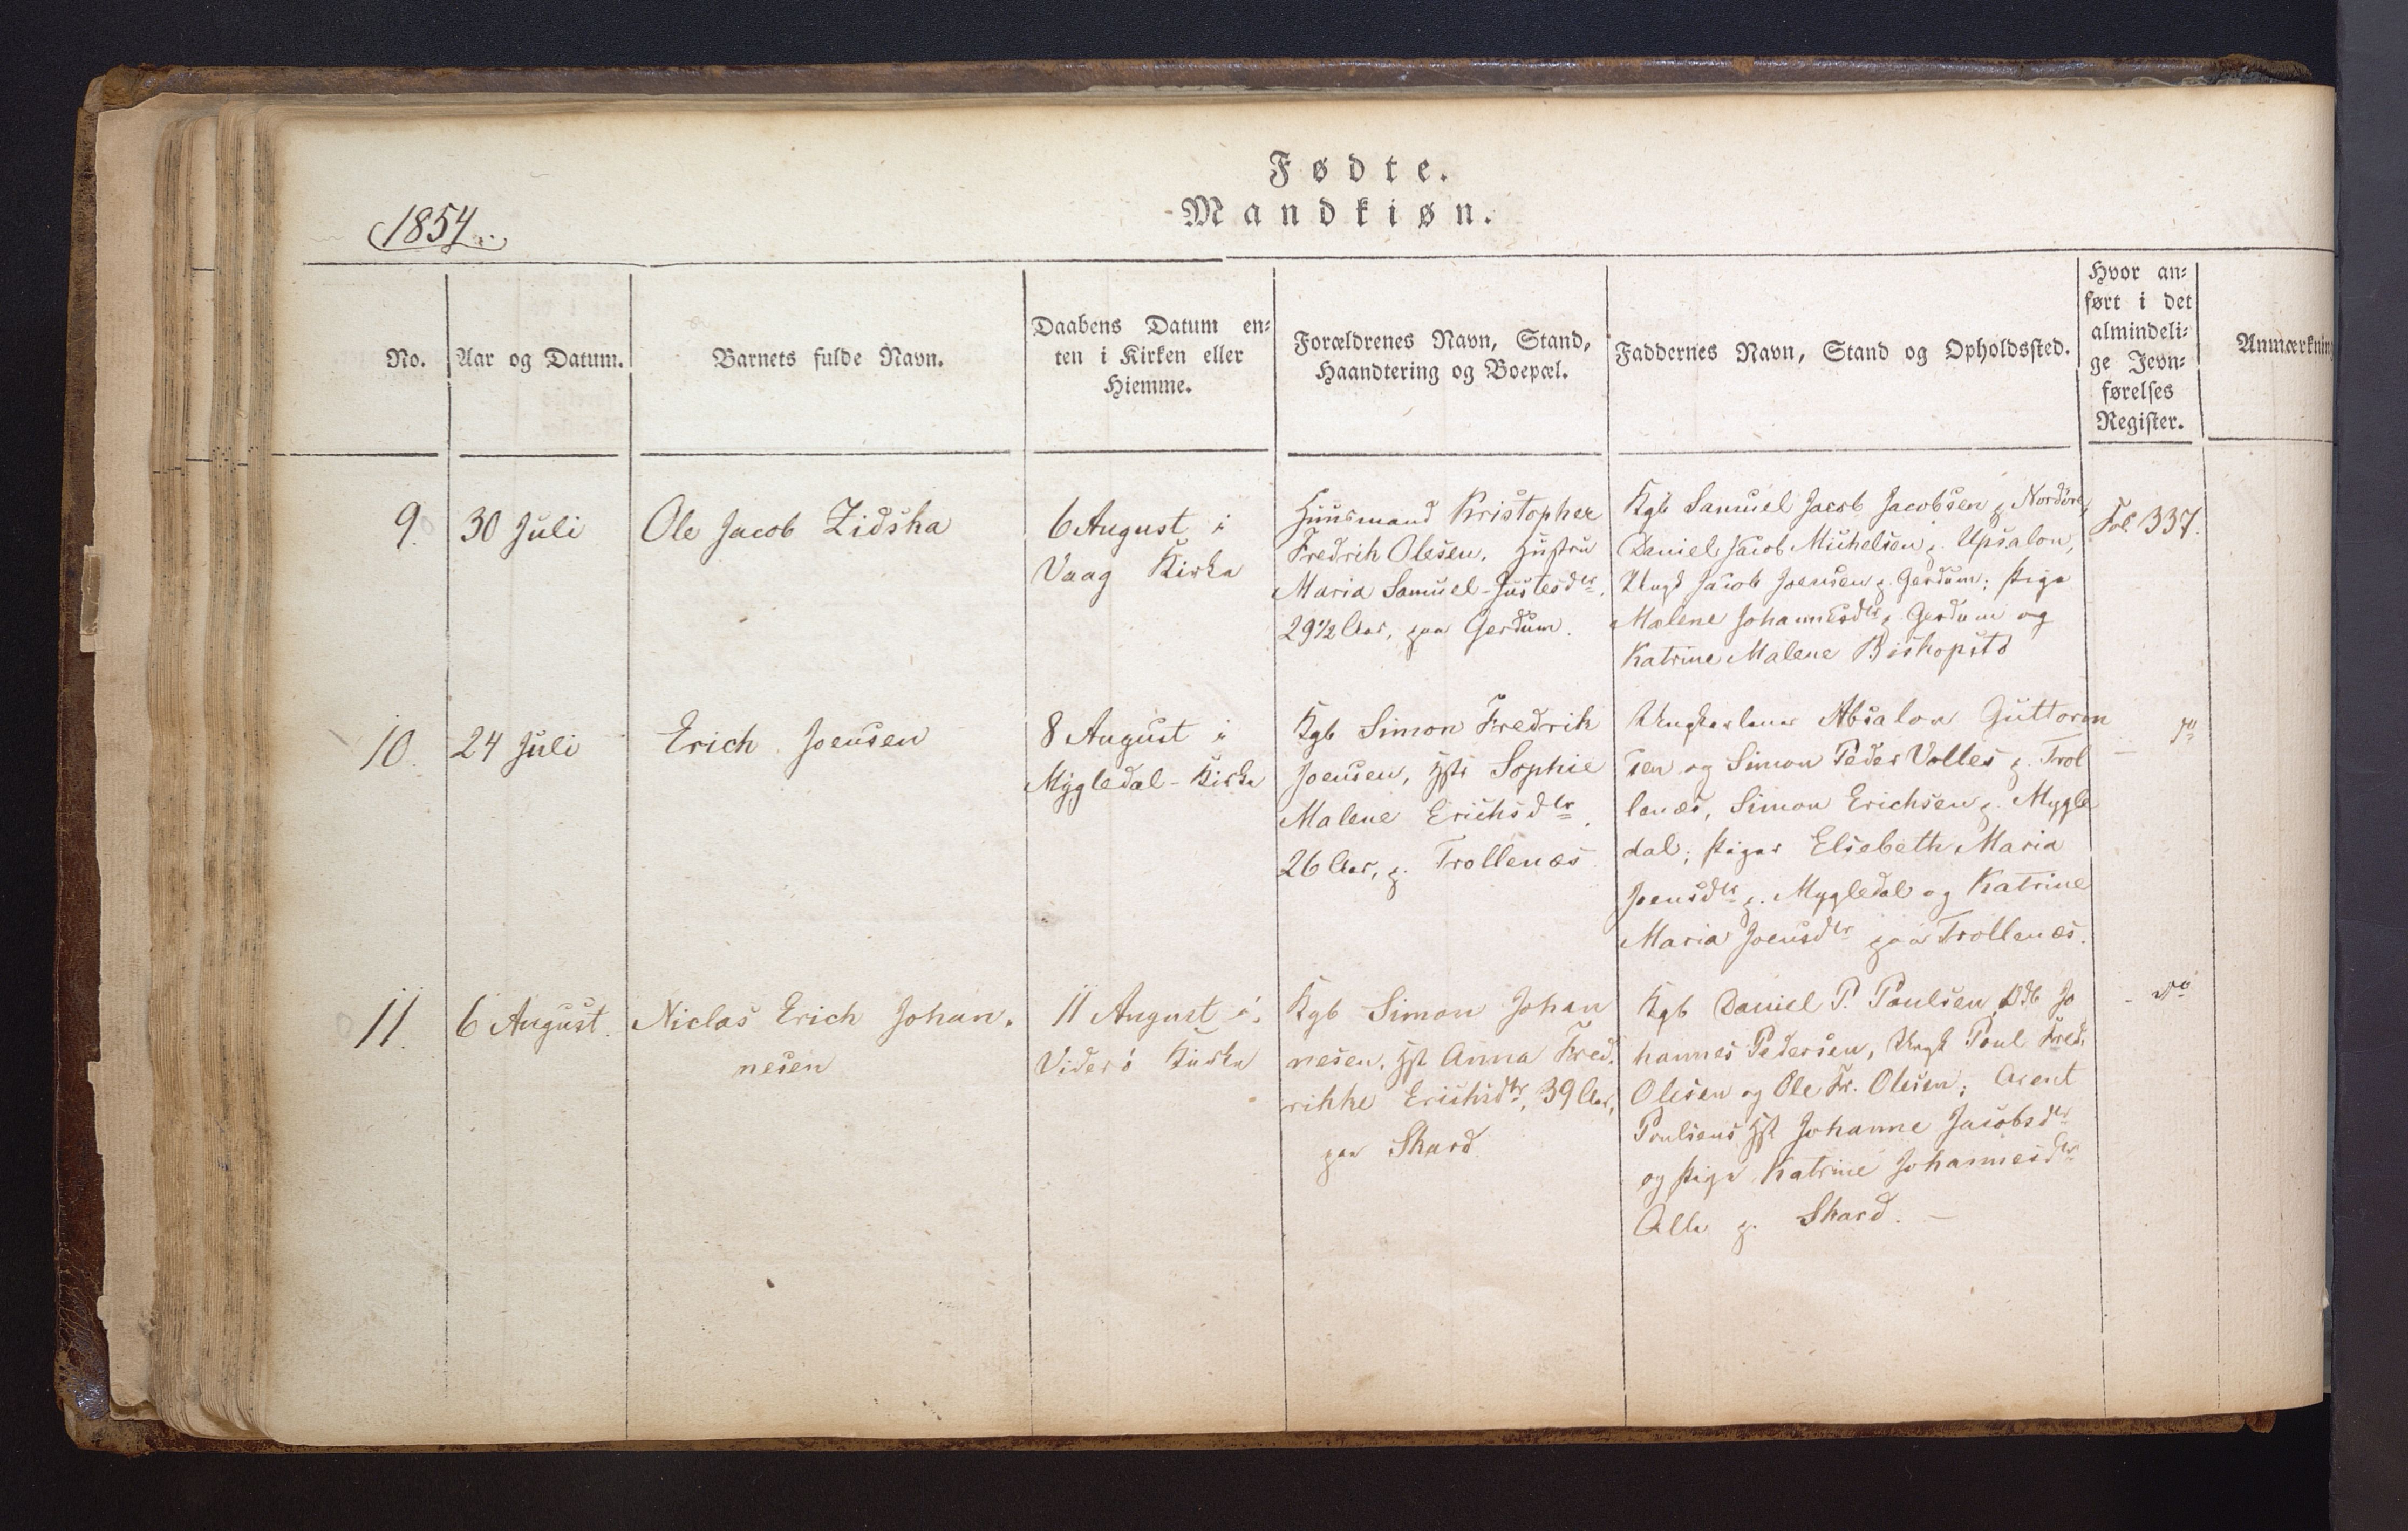 Fødte.
Mandkiøn.
1854.
No.
Aar og Datum.
Barnets fulde Navn.
Daabens Datum en-
ten i Kirken eller
Hiemme.
Forældrenes Navn, Stand,
Haandtering og Boepæl.
Faddernes Navn, Stand og Opholdssted.
Hvor an-
ført i det
almindeli-
ge Jevn-
førelses
Register.
Anmærknin
9.
30 Juli
Ole Jacob Zidska
6 August i
Vaag Kirke
Huusmand Kristopher
Fredrik Olesen, Hustru
Maria Samuel-Justesdtr.
29½ Aar, paa Gerdum.
Kgb Samuel Jacob Jacobsen p. Nordøre,
Daniel Jacob Michelsen p. Upsalon,
Ungk Jacob Joensen p. Gerdum; Pige
Malene Johannesdtr p. Gerdum og
Katrine Malene Biskopstø
Fol 337.
10.
24 Juli
Erich Joensen
8 August i
Mygledal-Kirke
Kgb Simon Fredrik
Joensen, Hstr Sophie
Malene Erichsdtr.
26 Aar, p. Trollenæs
Ungkarlene Absalon Guttorm
sen og Simon Peder Volles p. Trol
lenæs, Simon Erichsen p. Mygle
dal; Piger Elsebeth Maria
Joensdtr p. Mygledal og Katrine
Maria Joensdtr paa Trollenæs.
— do
11.
6 August.
Niclas Erich Johan-
nesen
11 August i
Viderø Kirke
Kgb Simon Johan
nesen, Hst Anna Fred.
rikke Erichsdtr, 39 Aar,
paa Skard
Kgb Daniel P. Poulsen, Odb Jo
hannes Pedersen, Ungk Poul Fred.
Olesen og Ole Fr. Olesen; Arent
Poulsens Hst Johanne Jacobsdtr
og Pige Katrine Johannesdtr
Alle p. Skard. —
- do